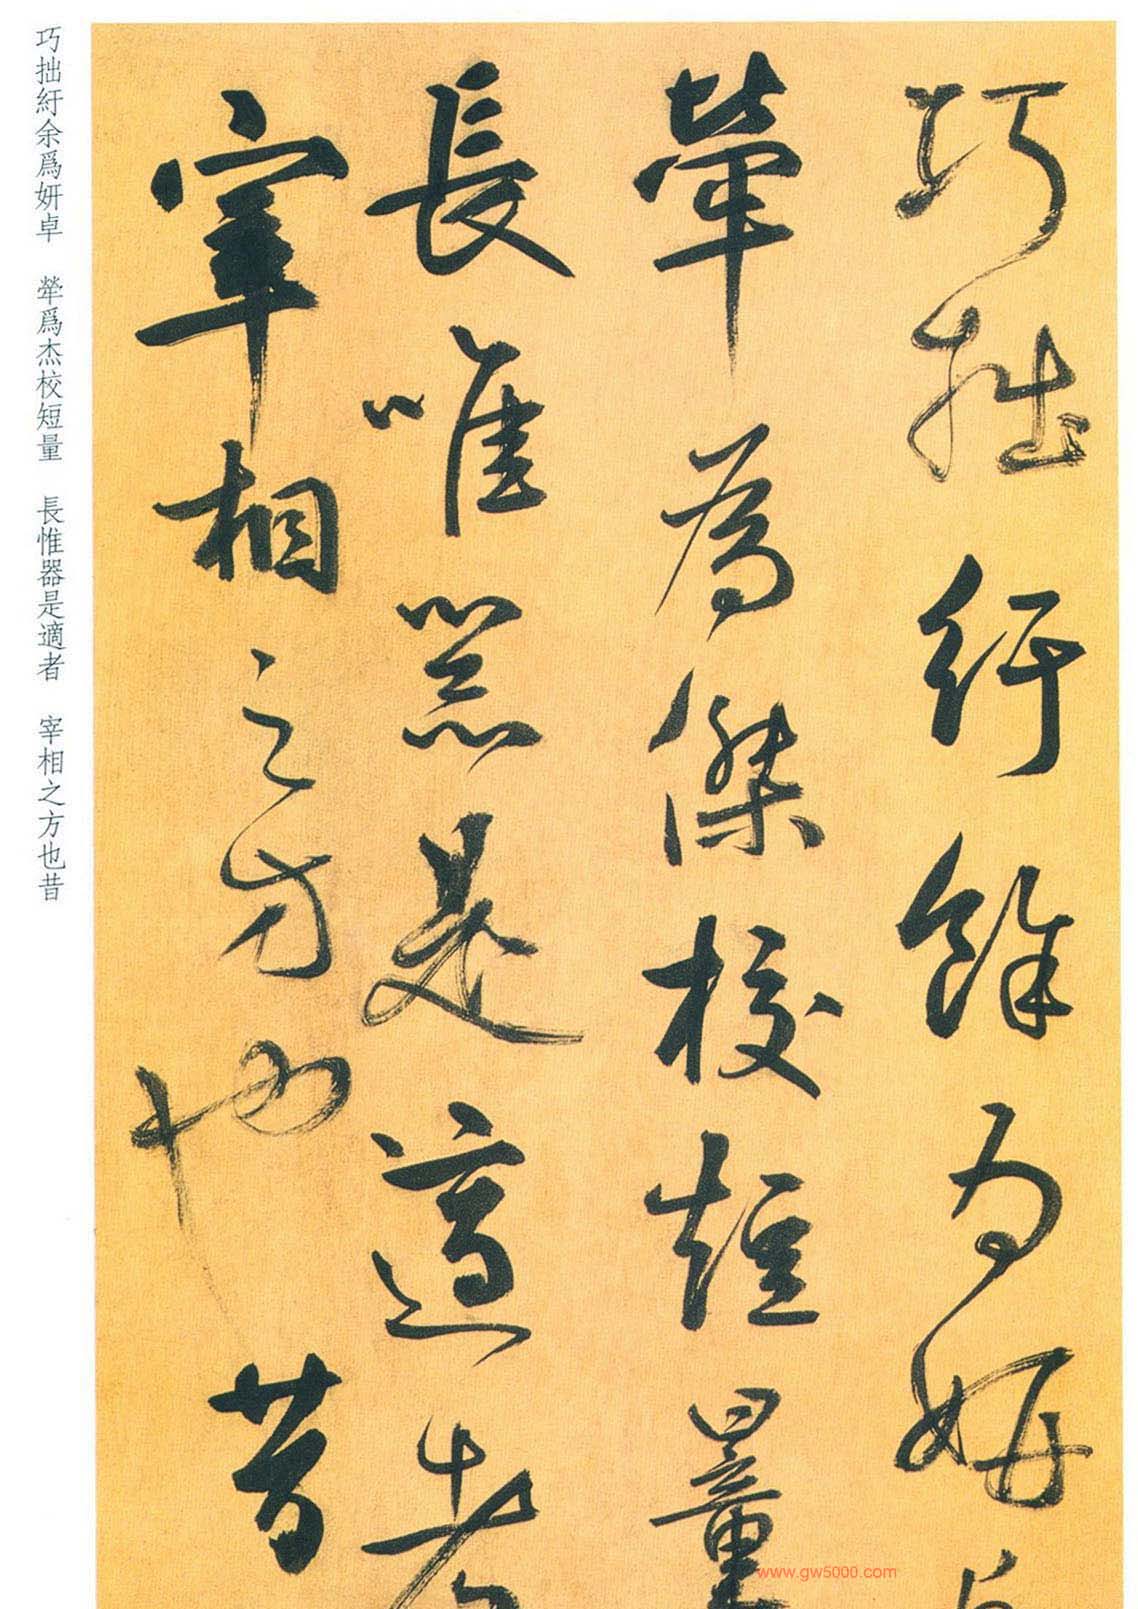 巧拙紆餘為妍卓
犖為傑校短量
長惟器是適者
宰相之方也昔
巧拙紆余爲妍卓　犖爲杰校短量　長惟器是適者　宰相之方也昔
www.gw5000.com